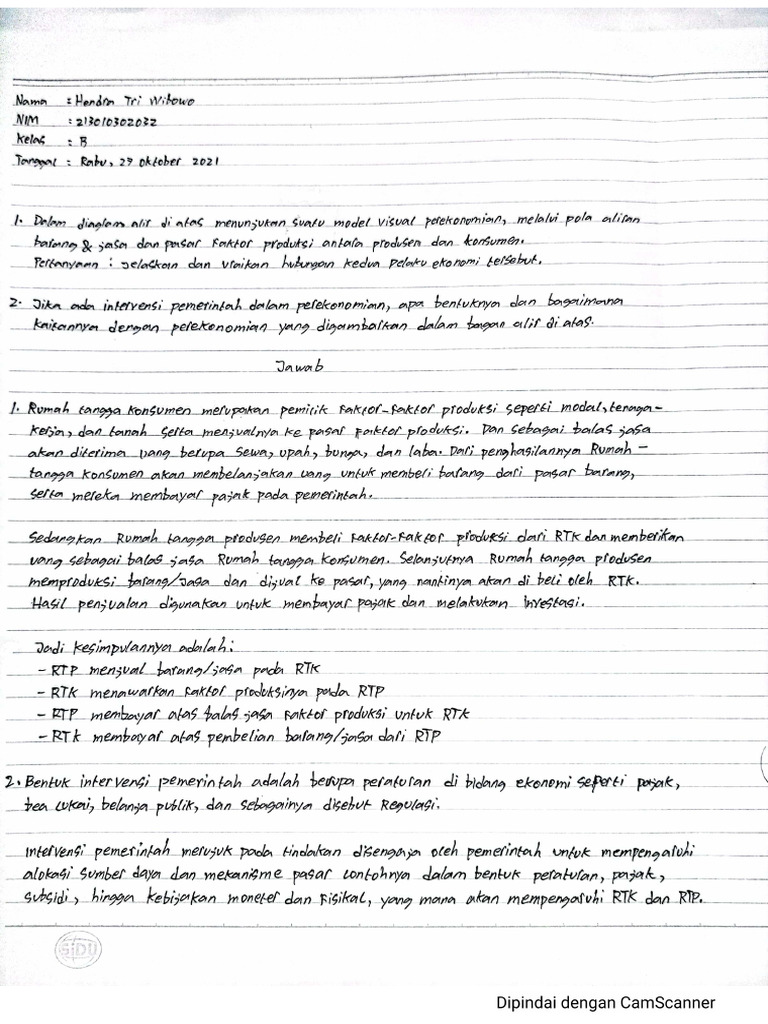 Nama : Hendra Tri Wibowo
NIM : 213010302032
Kelas : B
Tanggal : Rabu, 27 Oktober 2021
1. Dalam diagram alir di atas menunjukan suatu model visual perekonomian, melalui pola aliran
barang & jasa dan pasar faktor produksi antara produsen dan konsumen.
Pertanyaan : Jelaskan dan Uraikan hubungan kedua pelaku ekonomi tersebut.
2. Jika ada intervensi pemerintah dalam perekonomian, apa bentuknya dan bagaimana
kaitannya dengan perekonomian yang digambarkan dalam bagan alir di atas.
Jawab
1. Rumah tangga konsumen merupakan pemilik faktor-faktor produksi seperti modal, tenaga-
kerja, dan tanah serta menjualnya ke pasar faktor produksi. Dan sebagai balas jasa
akan diterima uang berupa sewa, upah, bunga, dan laba. Dari penghasilannya Rumah-
tangga konsumen akan membelanjakan uang untuk membeli barang dari pasar barang,
serta mereka membayar pajak pada pemerintah.
Sedangkan Rumah tangga produsen membeli faktor-faktor produksi dari RTK dan memberikan
uang sebagai balas jasa Rumah tangga konsumen. Selanjutnya Rumah tangga produsen
memproduksi barang/Jasa dan dijual ke pasar, yang nantinya akan di beli oleh RTK.
Hasil penjualan digunakan untuk membayar pajak dan melakukan investasi.
Jadi kesimpulannya adalah:
- RTP menjual barang/jasa pada RTK
- RTK menawarkan faktor produksinya pada RTP
- RTP membayar atas balas jasa faktor produksi untuk RTK
- RTK membayar atas pembelian barang/jasa dari RTP
2. Bentuk intervensi pemerintah adalah berupa peraturan di bidang ekonomi seperti pajak,
bea cukai, belanja publik, dan sebagainya disebut Regulasi.
Intervensi pemerintah merujuk pada tindakan disengaja oleh pemerintah untuk mempengaruhi
alokasi sumber daya dan mekanisme pasar contohnya dalam bentuk peraturan, pajak,
subsidi, hingga kebijakan moneter dan Fisikal, yang mana akan mempengaruhi RTK dan RTP.
SIDU
Dipindai dengan CamScanner